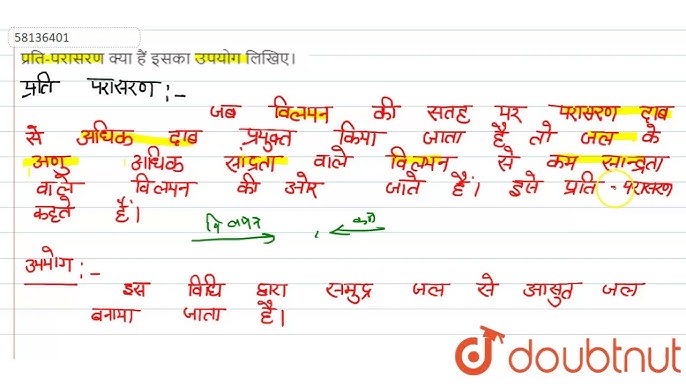 58136401
प्रति-परासरण क्या हैं इसका उपयोग लिखिए।
प्रति परासरण :-
जब विलयन की सतह पर परासरण दाब
से अधिक दाब प्रयुक्त किया जाता है तो जल के
अणु अधिक सांद्रता वाले विलयन से कम सान्द्रता
वाले विलयन की ओर जाते हैं। इसे प्रति - परासरण
कहते हैं।
उपयोग :-
इस विधि द्वारा समुद्र जल से आसुत जल
बनाया जाता है।
doubtnut